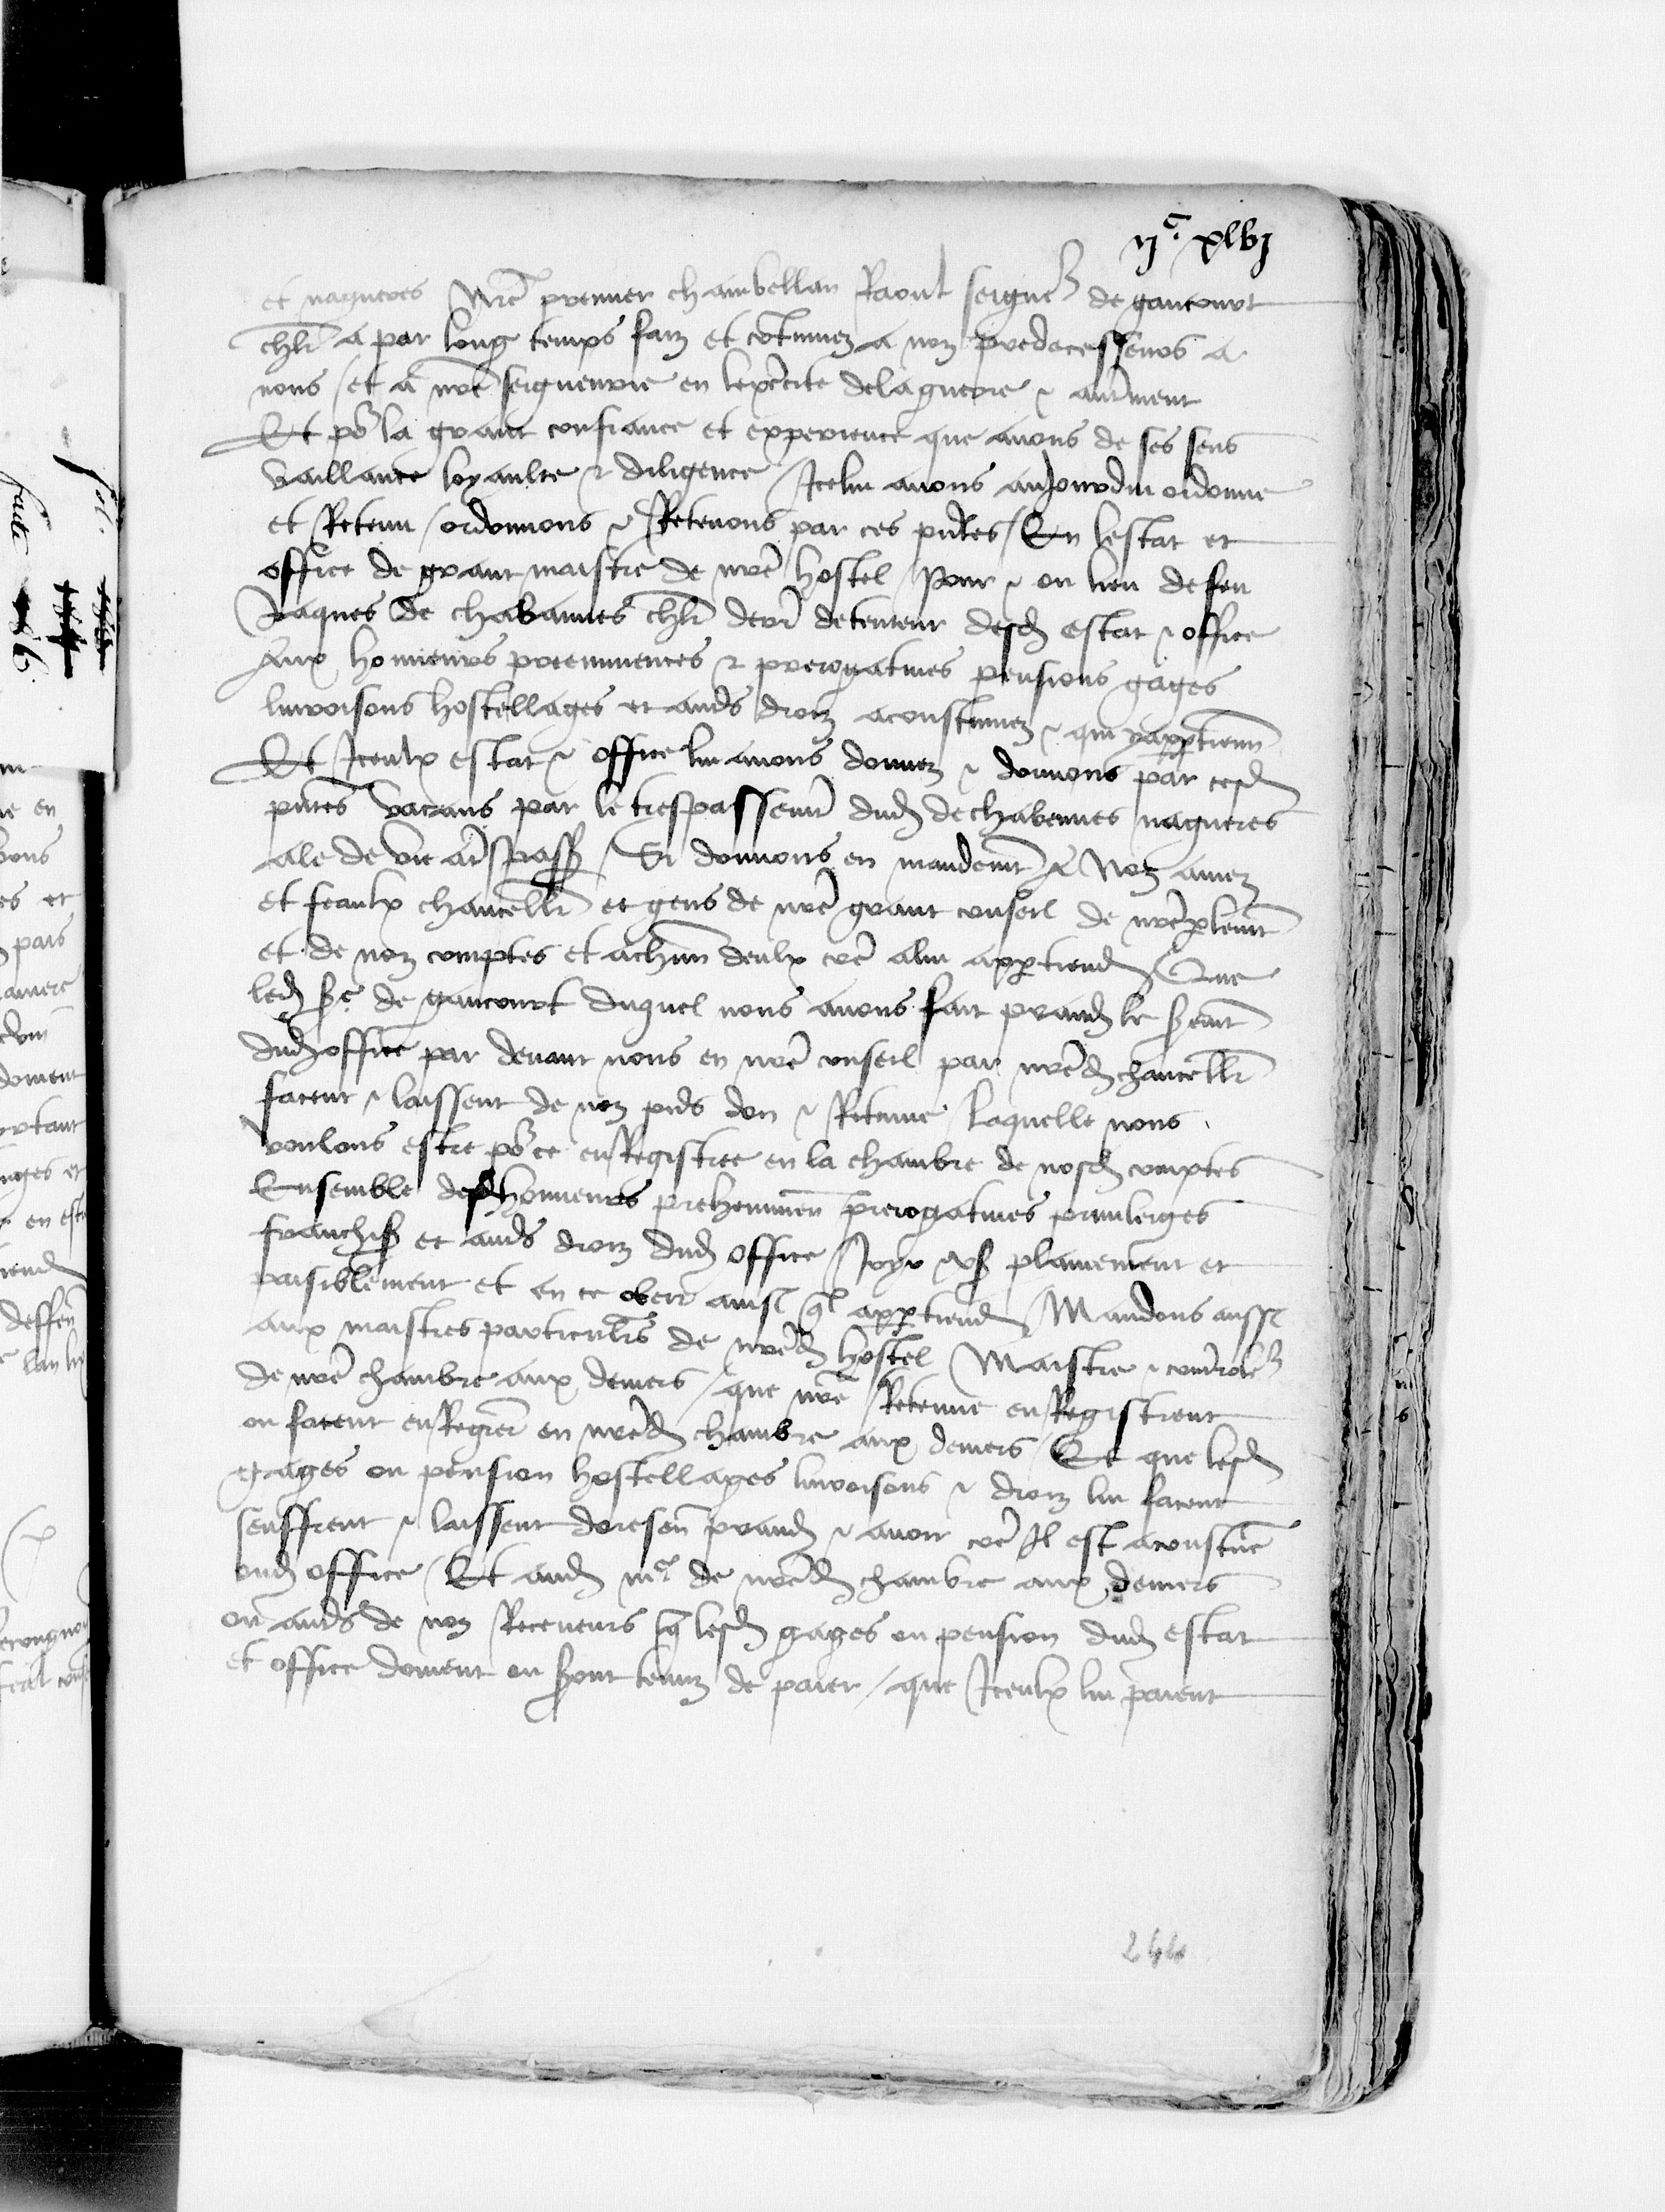 ijc xlvj
et nagueres nre premier chambellan Raoul seigneʳ de gaucourt
chlr a par long temps faiz et cotinuez a noz predecesseurs a
nous / et a nre seigneurie en lexercite dela guerre & autrment
Et por la grant confiance et experience que auons de ses sens
vaillance loyaulte & diligence / Icelui auons aujourdui ordonne
et Retenu / ordonnons & Retenons par ces pntes / En lestat et
office de grant maistre de nre hostel / pour & ou lieu de feu
Jaques de chabannes chlr derr detenteur desd estat & office
Aux honneurs preeminences & prerogatiues pensions gages
liuroisons hostellages et auts droiz acoustumez & qui y apptienn
Et Iceulx estat & office lui auons donnez & donnons par cesd
pntes vacans par le trespassemt dud de chabennes nagueres
ale de vie a trespass / Si donnons en mandemt A Noz amez
et feaulx chancellr et gens de nre grant conseil de nre plemt
et de noz comptes et a chun deulx coe a lui apptiend / Que
led sr de gaucourt duquel nous auons fait prand le sermt
dud office par deuant nous en nre conseil par nred chancellr
facent & laissent de noz pns don & Retenue / laquelle nous
voulons estre por ce enRegistree en la chambre de nosd comptes
Ensemble desd honneurs preheminen prerogatiues priuileiges
franchiss et auts droiz dud office Joyr & vs plainement et
paisiblement et en ce obeir ainsi ql apptiend / Mandons aussi
aux maistres particulrs de nred hostel / Maistre & contrerolʳ
de nre chambre aux deniers / que nre Retenue enRegistrent
ou facent enRegrer en nred chambre aux deniers / Et que lesd
gages ou pension hostellages liuroisons & droiz lui facent
seuffrent & laissent doresen prand & auoir coe Il est acoustue
oud office / Et aud me de nred chambre aux deniers
ou auts de noz Receueurs q lesd gages ou pension dud estat
et office doiuent ou seront tenuz de paier / que Iceulx lui paient
244